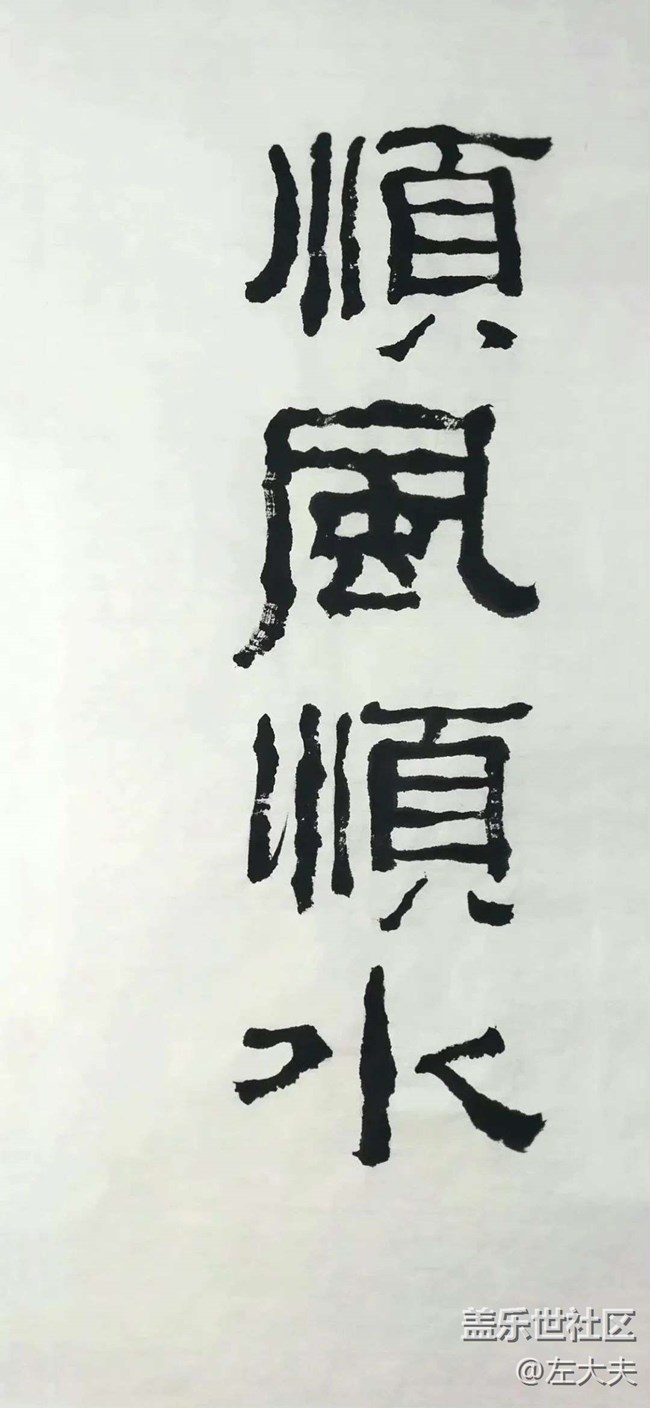 順風順水
盖乐世社区
@左大夫